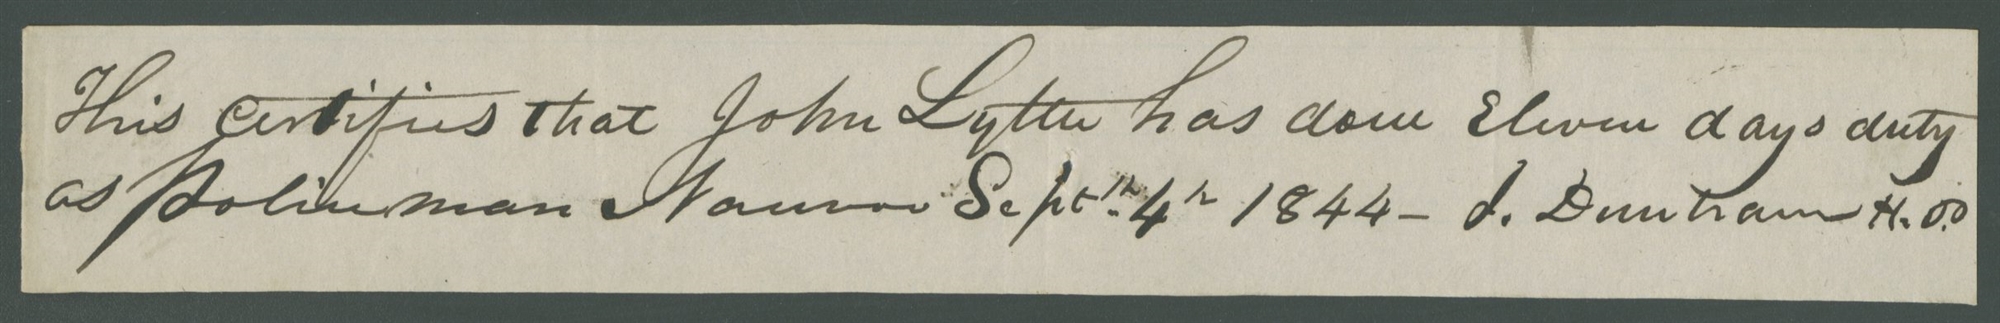 This certifies that John Lytle has done Eleven days duty
as Policeman Nauvoo Sept. 4th 1844 – J. Dunham H. P.